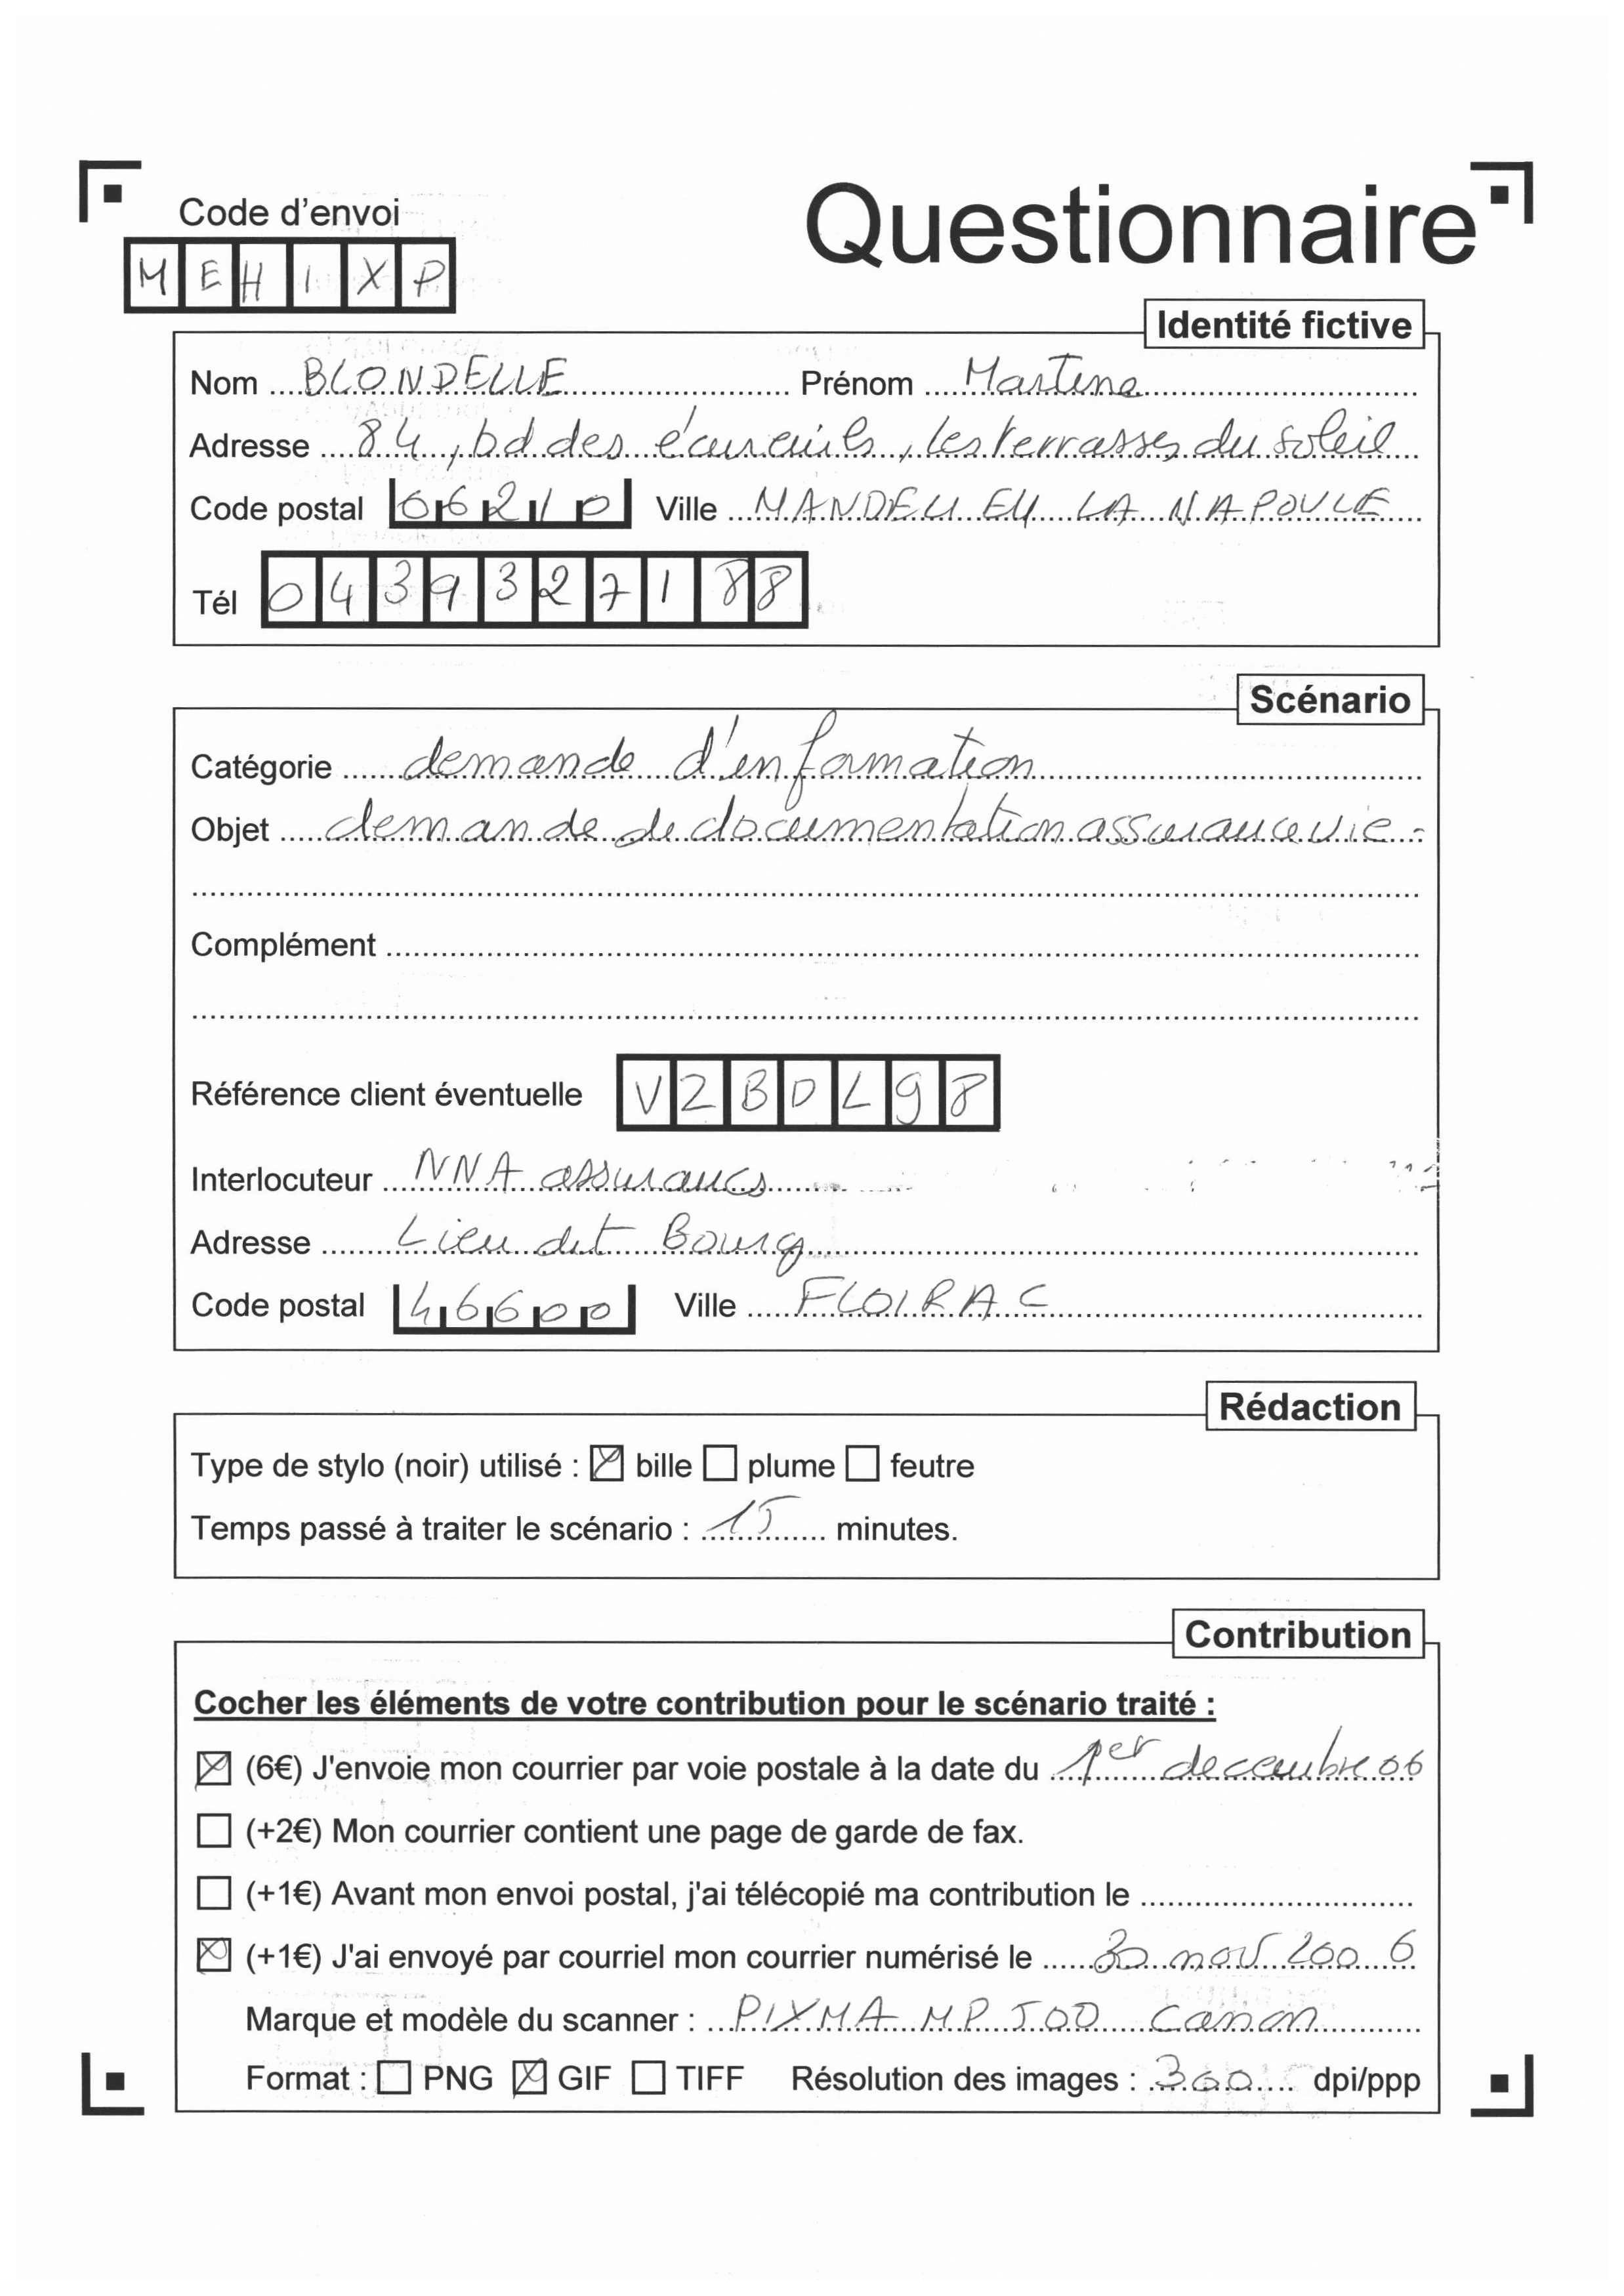 Code d'envoi
Questionnaire
M E H I X P
Identité fictive
Nom BLONDELLE Prénom Martine
Adresse 84, bd des écureuils, les terrasses du soleil
Code postal 06210 Ville MANDELIEU LA NAPOULE
Tél 0439327188
Scénario
Catégorie demande d'information
Objet demande de documentation assurance vie.
Complément
Référence client éventuelle V2BDL98
Interlocuteur NNA assurances
Adresse Lieu dit Bourg
Code postal 46600 Ville FLOIRAC
Rédaction
Type de stylo (noir) utilisé : ☒ bille ☐ plume ☐ feutre
Temps passé à traiter le scénario : 15 minutes.
Contribution
Cocher les éléments de votre contribution pour le scénario traité :
☒ (6€) J'envoie mon courrier par voie postale à la date du 1er decembre 06
☐ (+2€) Mon courrier contient une page de garde de fax.
☐ (+1€) Avant mon envoi postal, j'ai télécopié ma contribution le
☒ (+1€) J'ai envoyé par courriel mon courrier numérisé le 30 nov 2006
Marque et modèle du scanner : PIXMA MP 500 Canon
Format : ☐ PNG ☒ GIF ☐ TIFF Résolution des images : 300 dpi/ppp